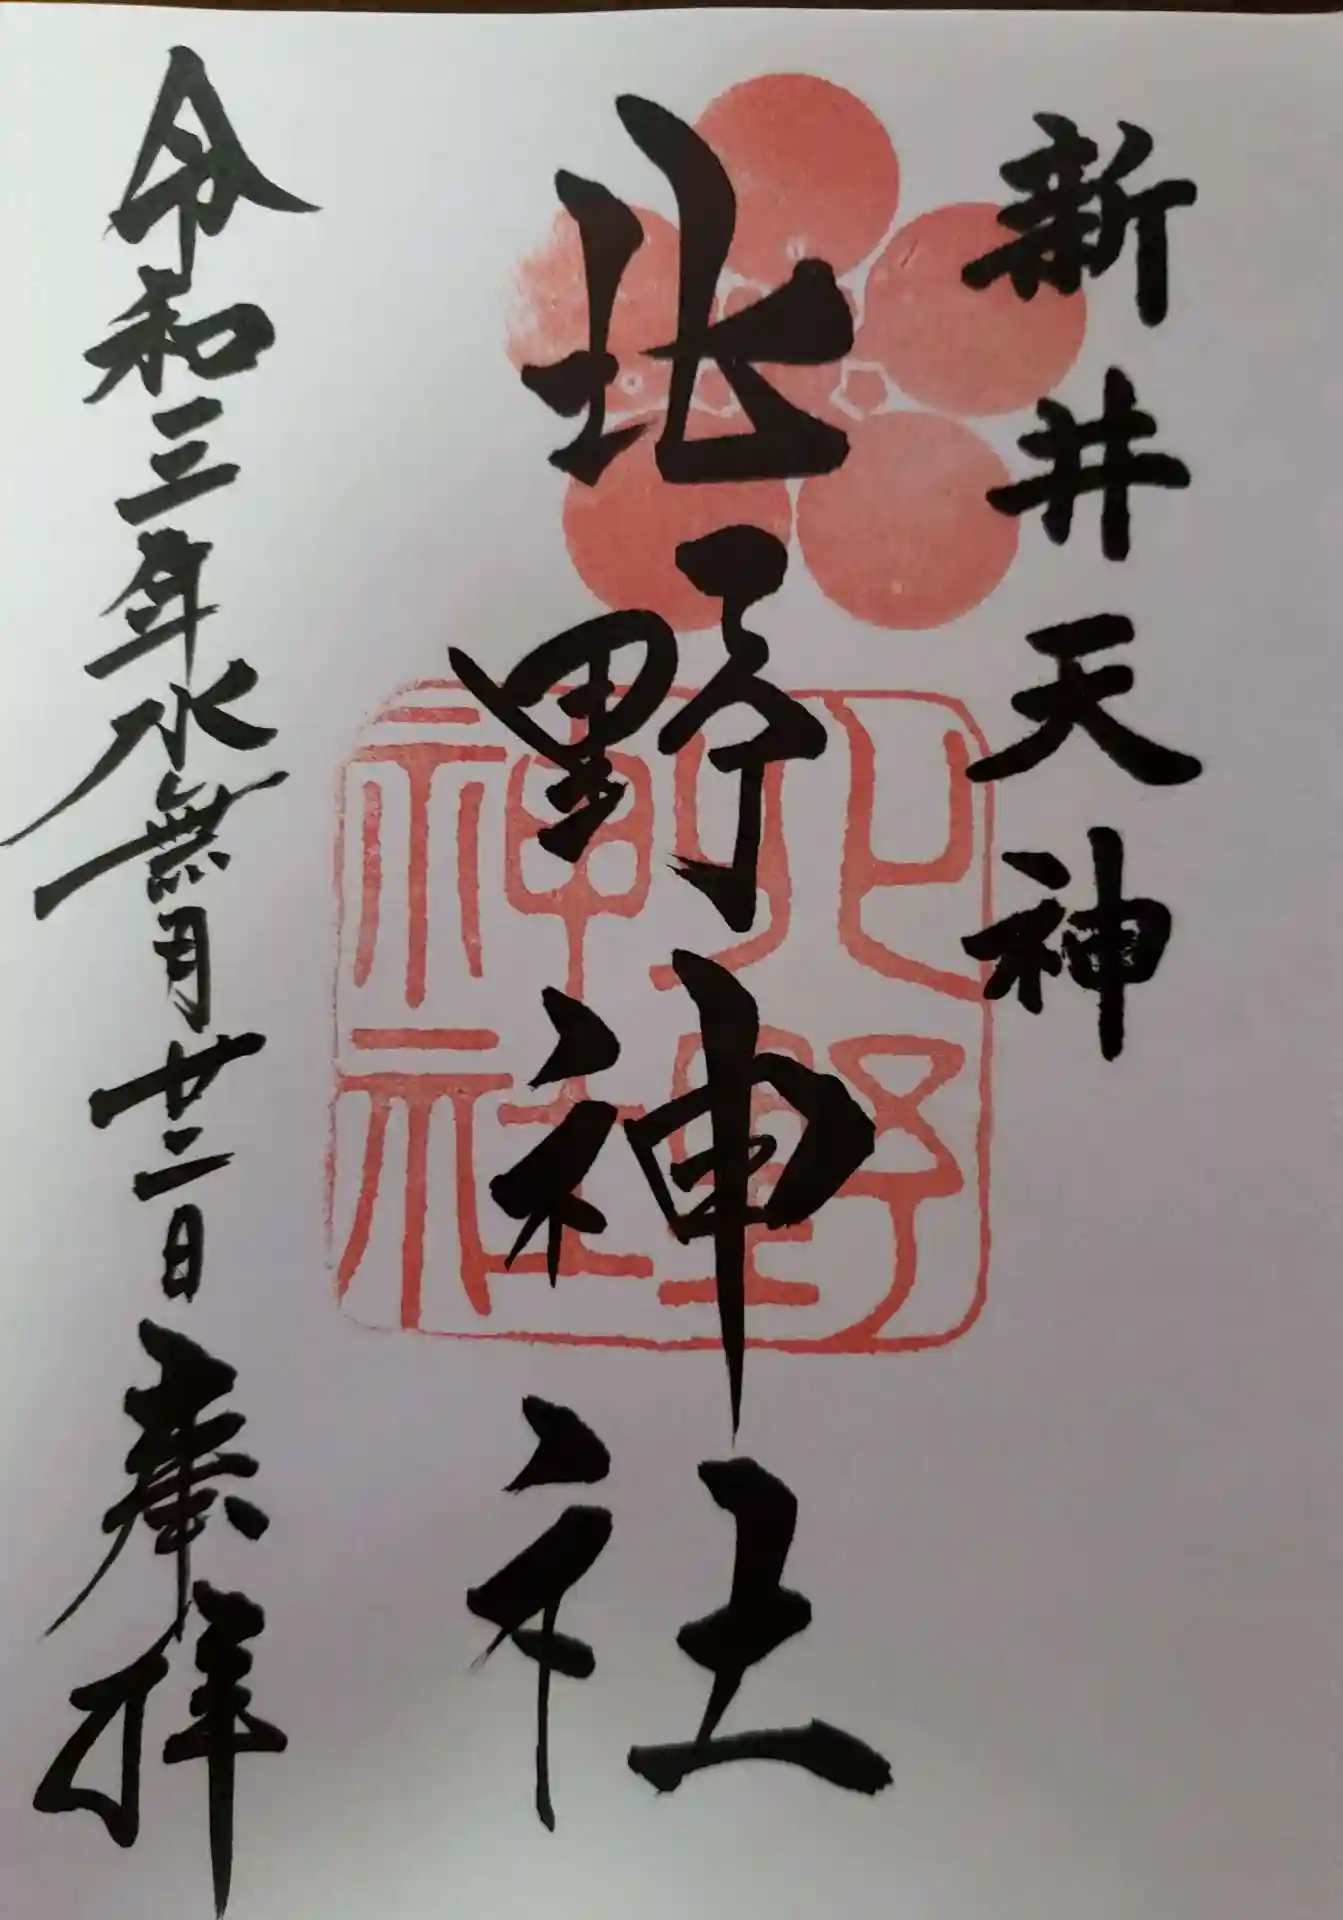 新井天神
北野神社
北野神社
令和三年水無月廿二日奉拝